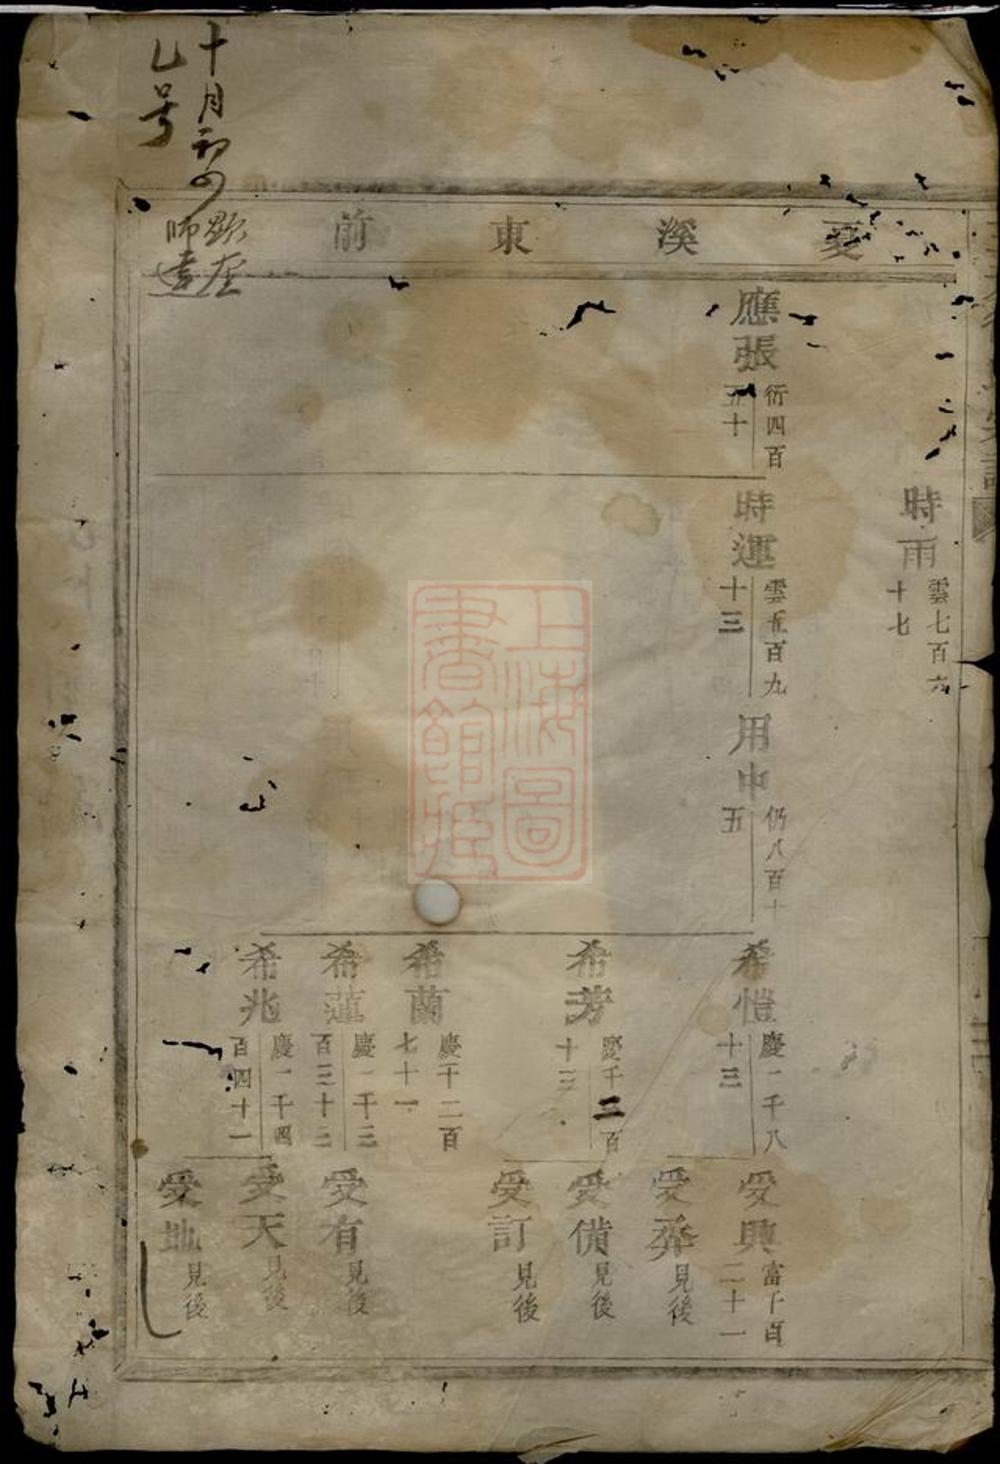 十月初四
乙号
溪東前
時雨
雲七百六
十七
應張
衍四百
五十
時運
雲五百九
十三
用中
仍八百十
五
希愷
慶一千八
十三
希芳
慶千二百
十三
希蘭
慶千二百
七十一
希蓮
慶一千三
百三十三
希兆
慶一千四
百四十一
受興
富千百
二十一
受莽
見後
受備
見後
受訂
見後
受有
見後
受天
見後
受地
見後
上海圖
書館藏